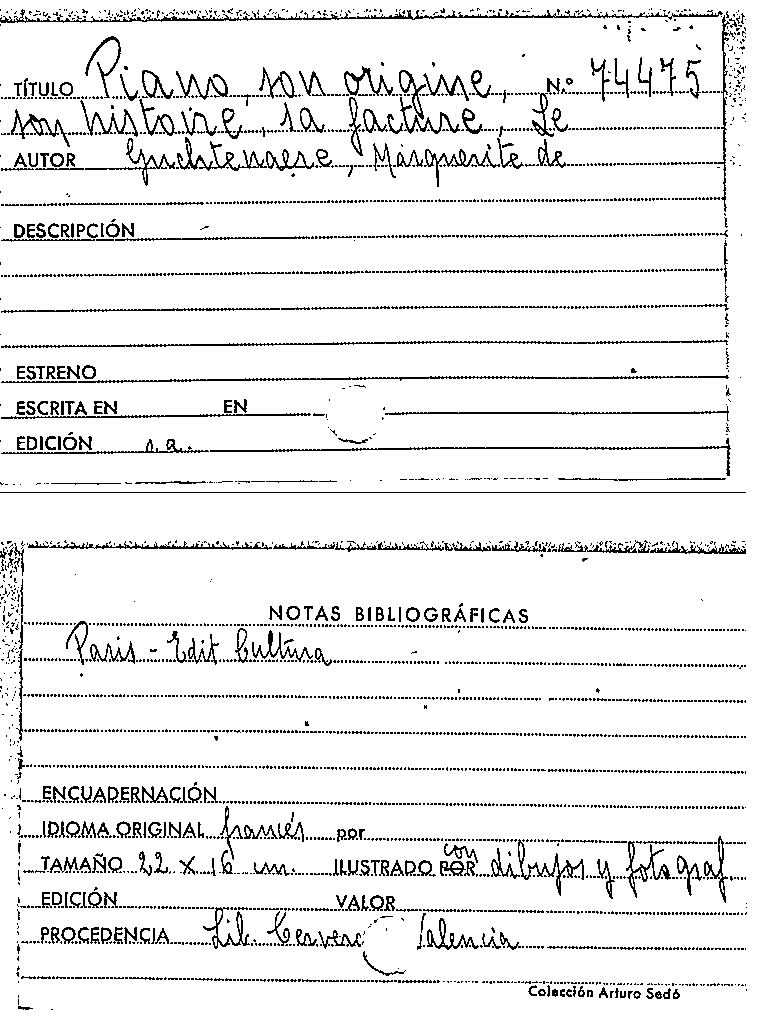 TÍTULO Piano, son origine, N.º 74475
son histoire, sa facture, Le
AUTOR Guchtenaere, Marguerite de
DESCRIPCIÓN
ESTRENO
ESCRITA EN EN
EDICIÓN s.a.
NOTAS BIBLIOGRÁFICAS
Paris - Edit Cultura
ENCUADERNACIÓN
IDIOMA ORIGINAL francés por
TAMAÑO 22 x 16 cm. ILUSTRADO POR con dibujos y fotograf.
EDICIÓN VALOR
PROCEDENCIA Lib. Valencia
Colección Arturo Sedó